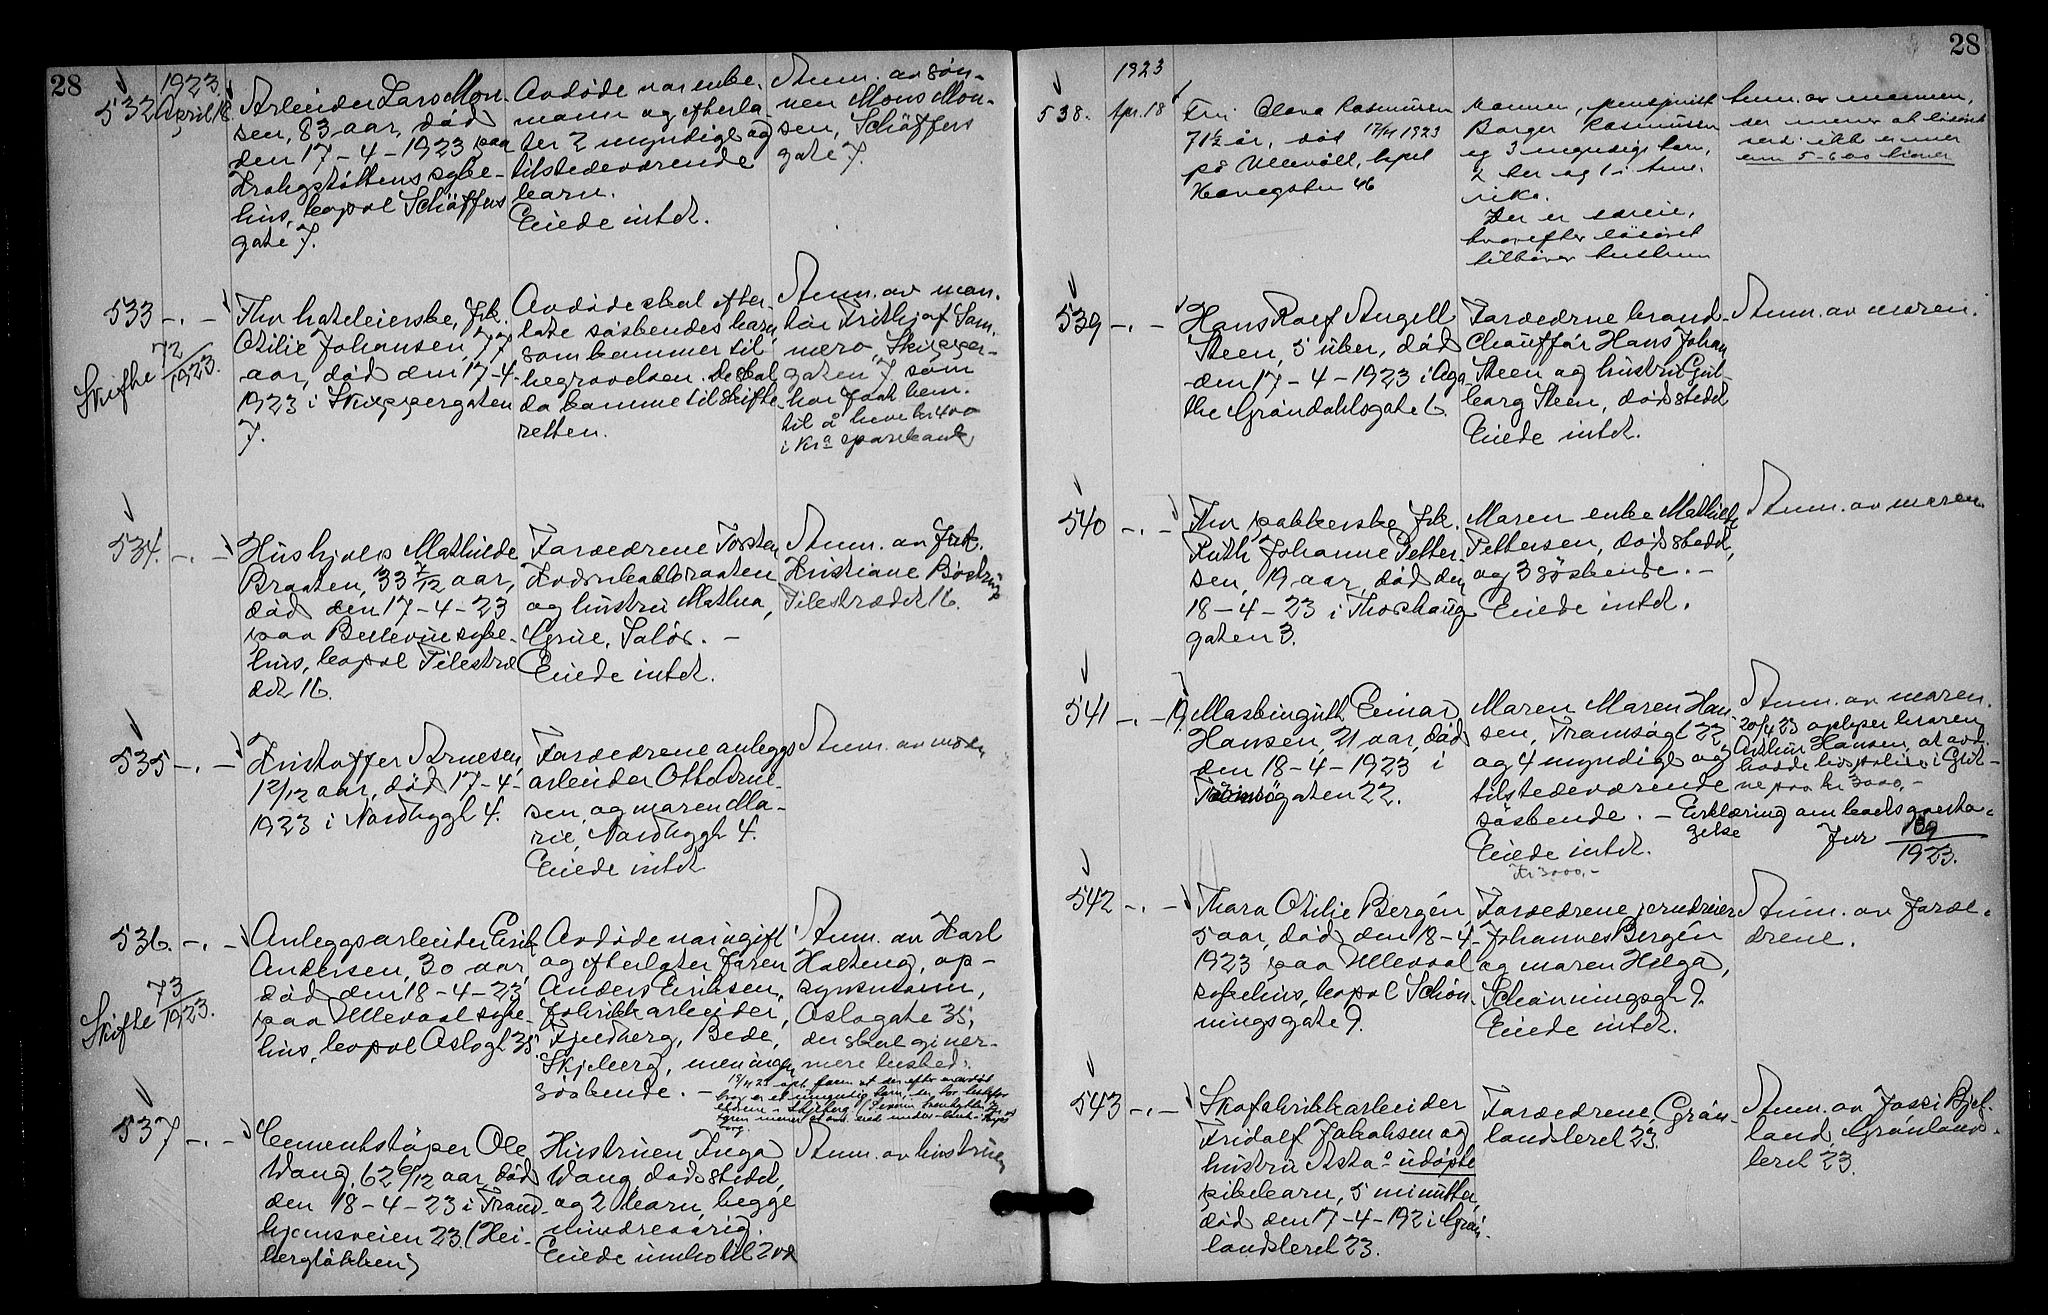 28
1923.
532 April 18.
Arbeider Lars Mon-
sen, 83 aar, død
den 17-4-1923 paa
Krohgstøttens syke-
hus, bopæl Schäffers
gate 7.
Avdøde var enke-
mann og efterla-
ter 2 myndige og
tilstedeværende
barn.
Eiede intet.
Anm. av søn-
nen Mons Mon-
sen, Schäffers
gate 7.
533 -"-
Skifte 72/1923.
Fhv. Frk.
Otilie Johansen, 77
aar, død den 17-4-
1923 i Skippergaten
7.
Avdøde skal efter-
late søskendes barn,
som kommer til
begravelsen. De skal
da komme til skifte-
retten.
Anm. av
Frithjof Sam-
mero, Skipper-
gaten 7 som
har faat hem.
til å heve kr 400
i Kra sparebank,
534. -"-
Hushjelp Mathilde
Braaten, 33 7/12 aar,
død den 17-4-23
paa Bellevue syke-
hus, bopæl Pilestræ
det 16.
Forældrene Torsten
og hustru Mathea,
Grue, Solør. -
Eiede intet.
Anm. av Frk.
Kristiane
Pilestrædet 16.
535 -"-
Kristoffer Arnesen,
12/12 aar, død 17-4-
1923 i Nordbygt 4.
Forældrene anleggs
arbeider Otto Arne-
sen, og moren Ma-
rie, Nordbygt 4.
Eiede intet
Anm. av moren
536. -"-
Skifte 73/1923.
Anleggsarbeider Erik
Andersen, 30 aar,
død den 18-4-23
paa Ullevaal syke-
hus, bopæl Oslogt 35.
Avdøde var ugift
og efterlater faren
Anders Eriksen,
fabrikkarbeider,
Fjeldberg, Bede,
Skjeberg, men ingen
søskende. -
Anm. av Karl
Holteng, op-
synsmann,
Oslogate 35,
der skal gi nær-
mere besked.
537 -"-
Cementstøper Ole
Wang, 62 6/12 aar, død
den 18-4-23 i Trond-
hjemsveien 23. (Hei-
bergløkken)
Hustruen Inga
Wang, dødsstedet,
og 2 barn, begge
mindreaarig.
Eiede innbo til 200
Anm. av hustruen
28
1923
538. Apr. 18
Fru Clara Rasmussen
71½ år, død 17/4 1923
på Ullevål, bopæl
Hauegaten 46
Mannen, pensjonist
Borger Rasmussen
og 3 myndige barn,
2 her og 1 i Ame-
rika.
Der er særeie,
hvorefter løsøret
tilhører hustruen
Anm. av mannen,
der mener at løsøret
verd ikke er mer
enn 5-600 kroner
539 -"-
Hans Rolf Angell
Steen, 5 uker, død
den 17-4-1923 i Aga-
the Grøndahlsgate 6.
Forældrene brand-
chauffør Hans Johan
Steen og hustru Gul-
borg Steen, dødsstedet
Eiede intet.
Anm. av moren.
540 -"-
Fhv. pakkerske Frk.
Ruth Johanne Petter
sen, 19 aar, død den
18-4-23 i Thorshaug
gaten 3.
Moren enke Mathilde
Pettersen, dødsstedet,
og 3 søskende. -
Eiede intet.
Anm. av moren
541 -"- 19.
Maskingutt Einar
Hansen, 21 aar, død
den 18-4-1923 i
Tromsøgaten 22.
Moren Maren Han-
sen, Tromsøgt 22
og 4 myndige og
tilstedeværende
søskende. -
Eiede intet.
Kr 3000,-
Anm. av moren.
20/4 23 oplyser broren
Arthur Hansen, at avd.
hadde livspolise i Gjit-
ne paa kr 3000,-
Erklæring om bortsoverta-
gelse
Jnr
1923.
542 -"-
Thora Otilie Bergén,
5 aar, død den 18-4-
1923 paa Ullevaal
sykehus, bopæl Schøn-
ningsgate 9.
Forældrene jerndreier
Johannes Bergén
og moren Helga,
Schønningsgt 9.
Eiede intet.
Anm. av foræl-
drene.
543 -"-
Skofabrikkarbeider
Fridolf Jakobsen og
hustru Asta's udøpte
pikebarn, 5 minutter,
død den 17-4-192 i Grøn-
landsleret 23.
Forældrene, Grøn-
landsleret 23.
Anm. av Jossi Kjel-
land, Grønlands-
leret 23.